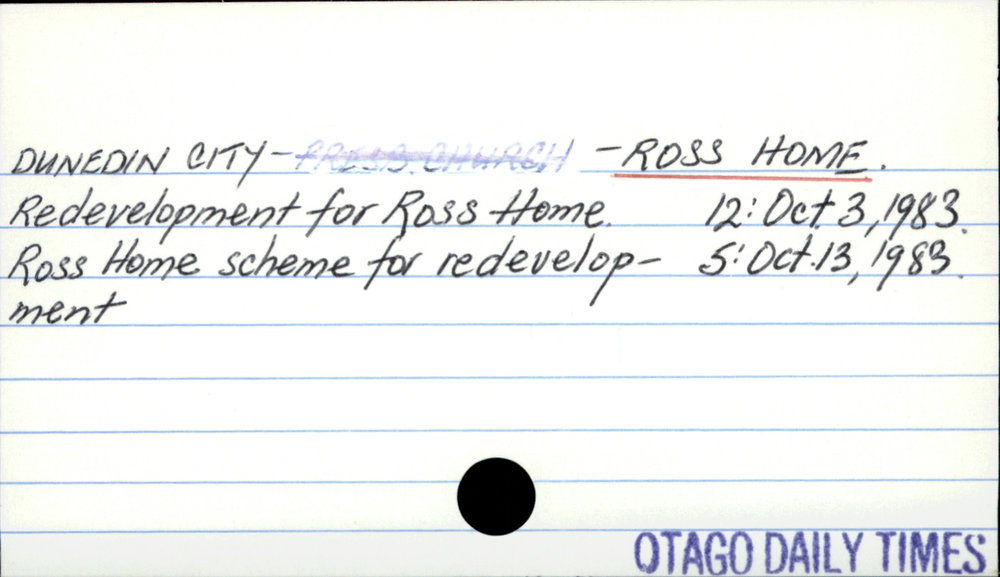 DUNEDIN CITY - PRESB. CHURCH - ROSS HOME.
Redevelopment for Ross Home. 12: Oct. 3, 1983.
Ross Home scheme for redevelop- 5: Oct. 13, 1983.
ment
OTAGO DAILY TIMES